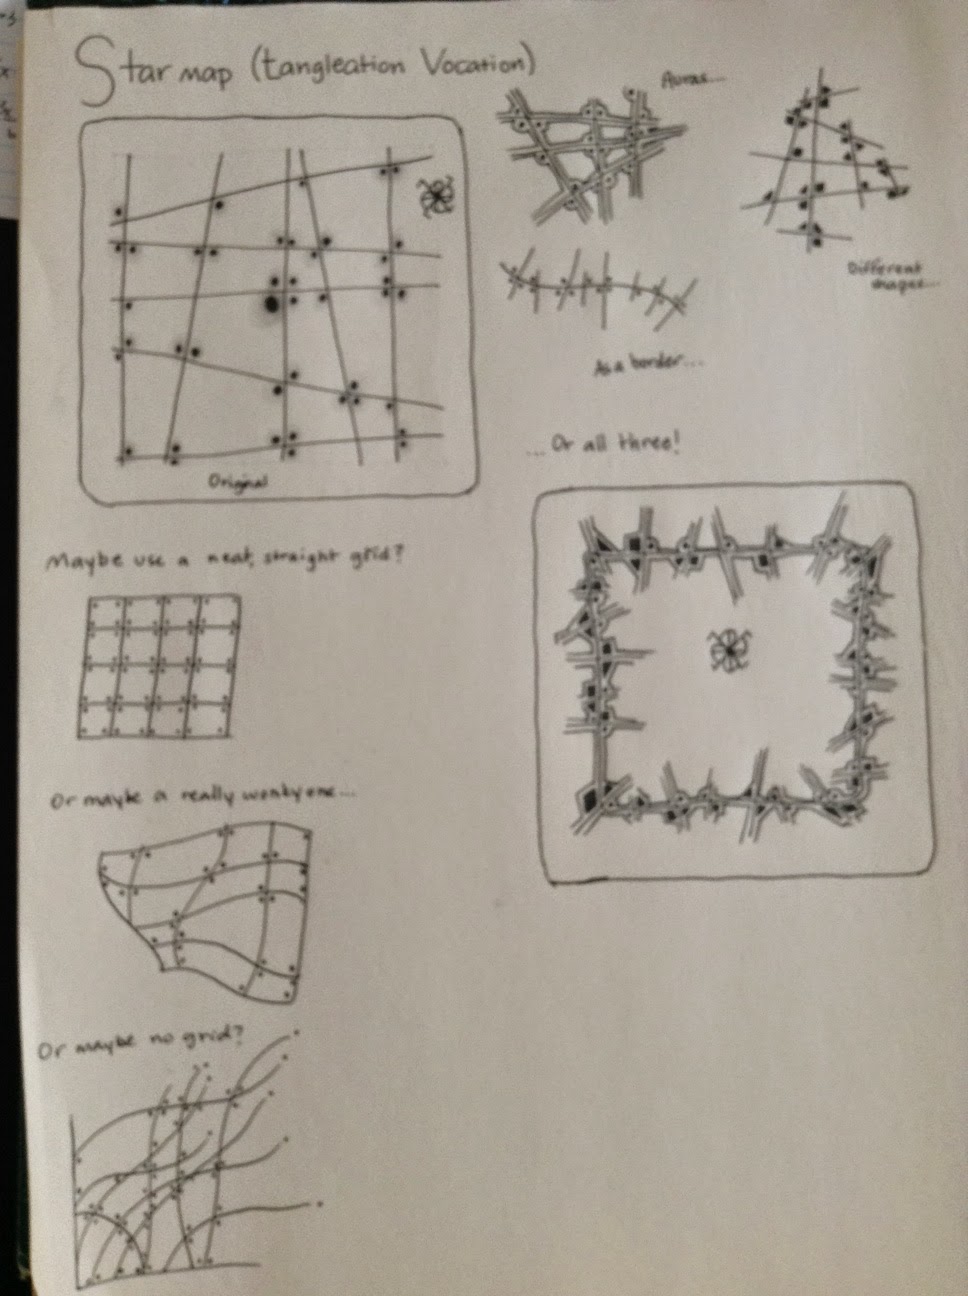 Star map (tangleation Vocation)
Auras...
Different
shapes...
As a border...
...Or all three!
Original
Maybe use a neat, straight grid?
Or maybe a really wonky one...
Or maybe no grid?